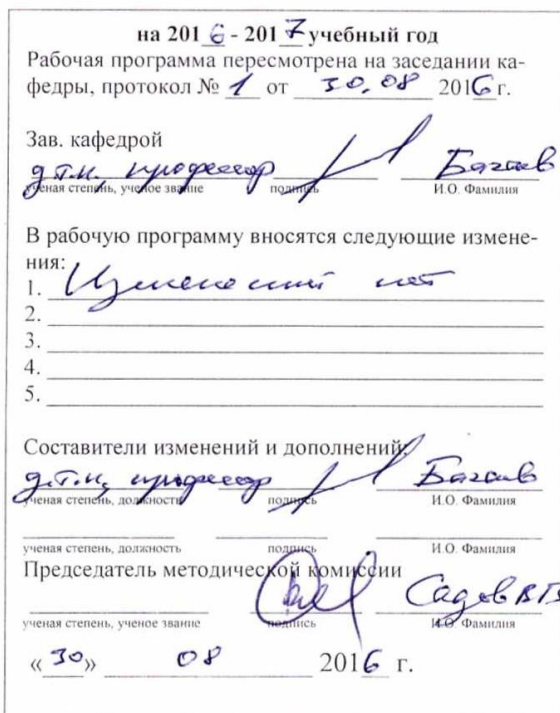 на 2016 - 2017 учебный год
Рабочая программа пересмотрена на заседании ка-
федры, протокол № 1 от 30.08 2016 г.
Зав. кафедрой
д.т.н., профессор
ученая степень, ученое звание подпись И.О. Фамилия
В рабочую программу вносятся следующие измене-
ния:
1. Изменений нет
2.
3.
4.
5.
Составители изменений и дополнений:
д.т.н., профессор
ученая степень, должность подпись И.О. Фамилия
ученая степень, должность подпись И.О. Фамилия
Председатель методической комиссии
ученая степень, ученое звание подпись И.О. Фамилия
«30» 08 2016 г.